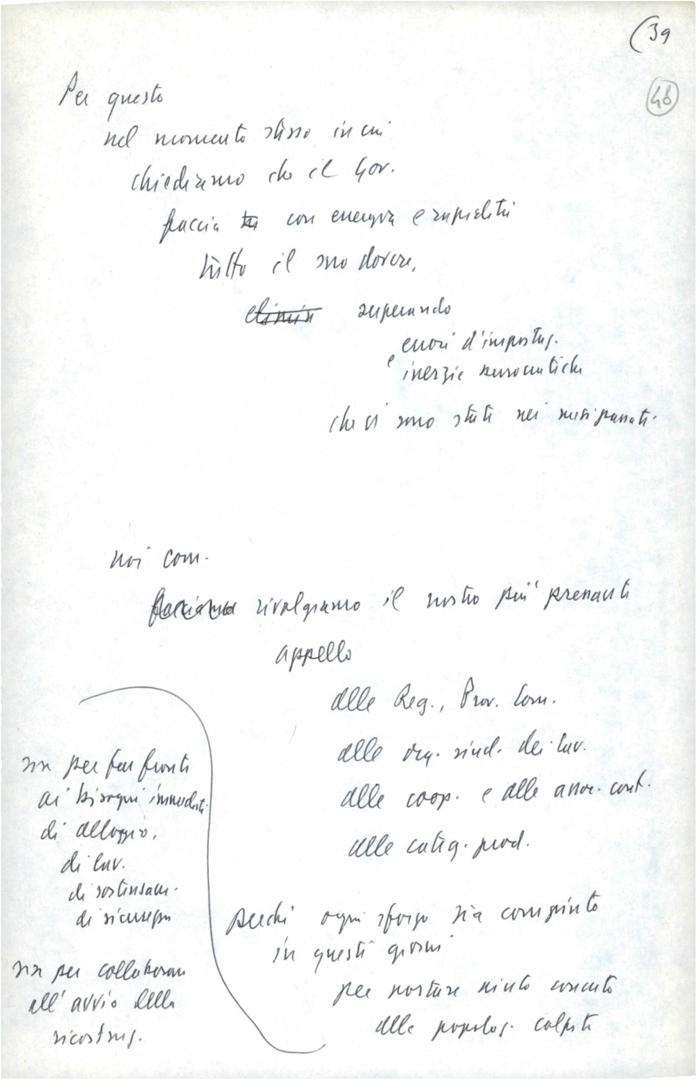 (39
46
Per questo
nel momento stesso in cui
chiediamo che il Gov.
faccia con energia e rapidità
tutto il suo dovere,
elimin superando
errori d'impostaz.
e inerzie burocratiche
che ci sono stati nei mesi passati.
noi com.
facciamo rivolgiamo il nostro più pressante
appello
alle Reg., Prov. Com.
alle org. sind. dei lav.
alle coop. e alle assoc. cont.
alle categ. prod.
perché ogni sforzo sia compiuto
in questi giorni
per portare aiuto concreto
alle popolaz. colpite
sia per far fronte
ai bisogni immediati
di alloggio,
di lav.
di sostentam.
di sicurezza
sia per collaborare
all'avvio della
ricostruz.